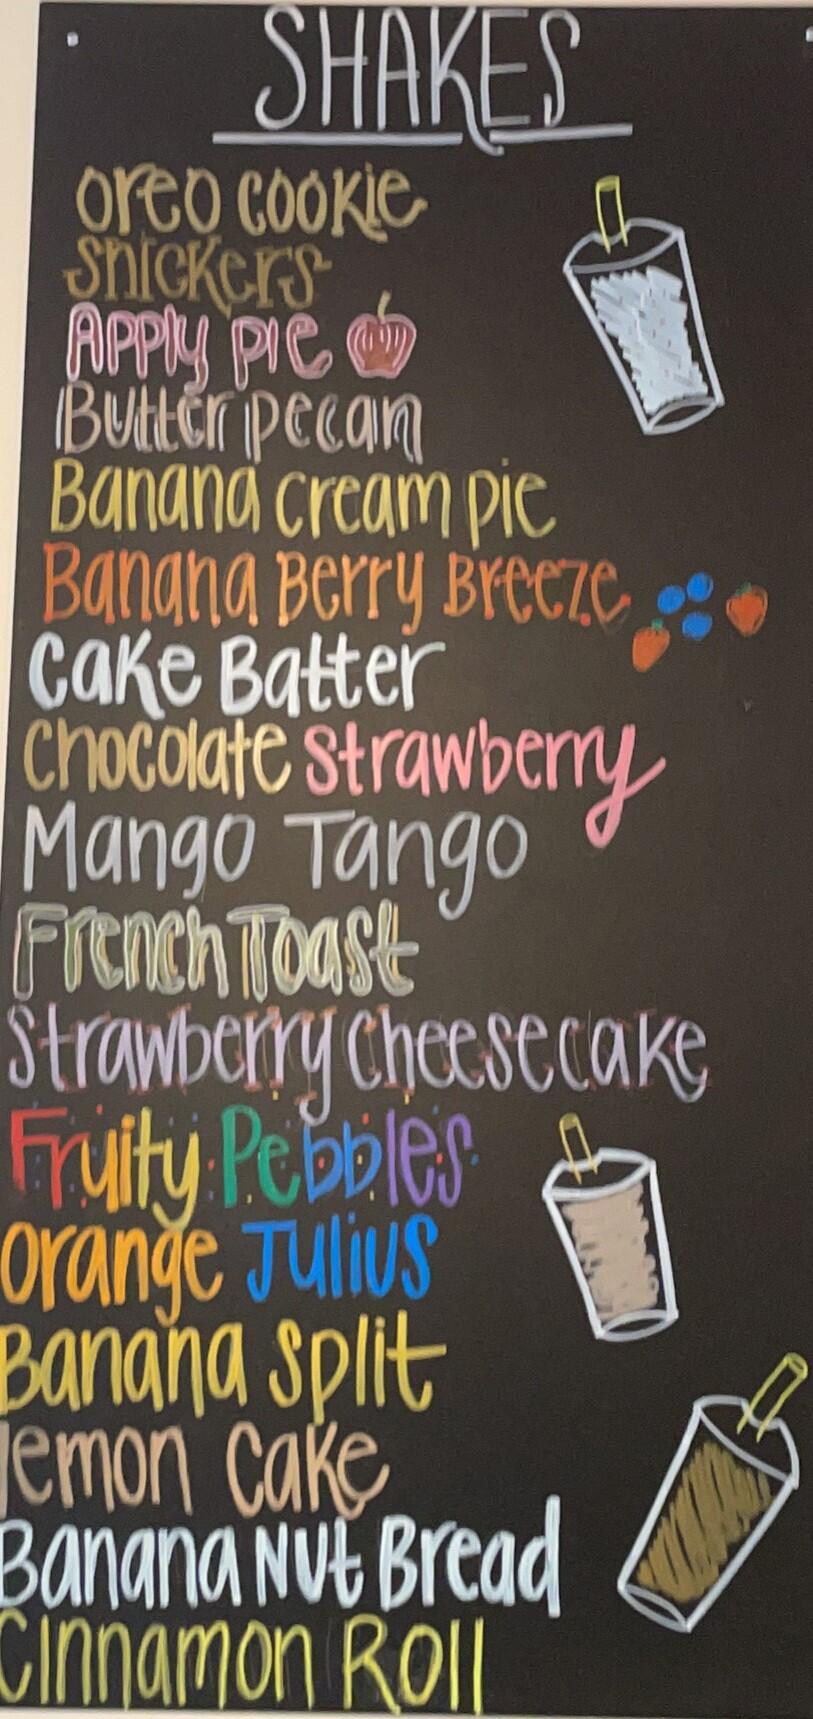 SHAKES
Oreo Cookie
Snickers
Apply Pie
Butter Pecan
Banana Cream Pie
Banana Berry Breeze
Cake Batter
Chocolate Strawberry
Mango Tango
French Toast
Strawberry Cheesecake
Fruity Pebbles
Orange Julius
Banana Split
lemon Cake
Banana Nut Bread
Cinnamon Roll